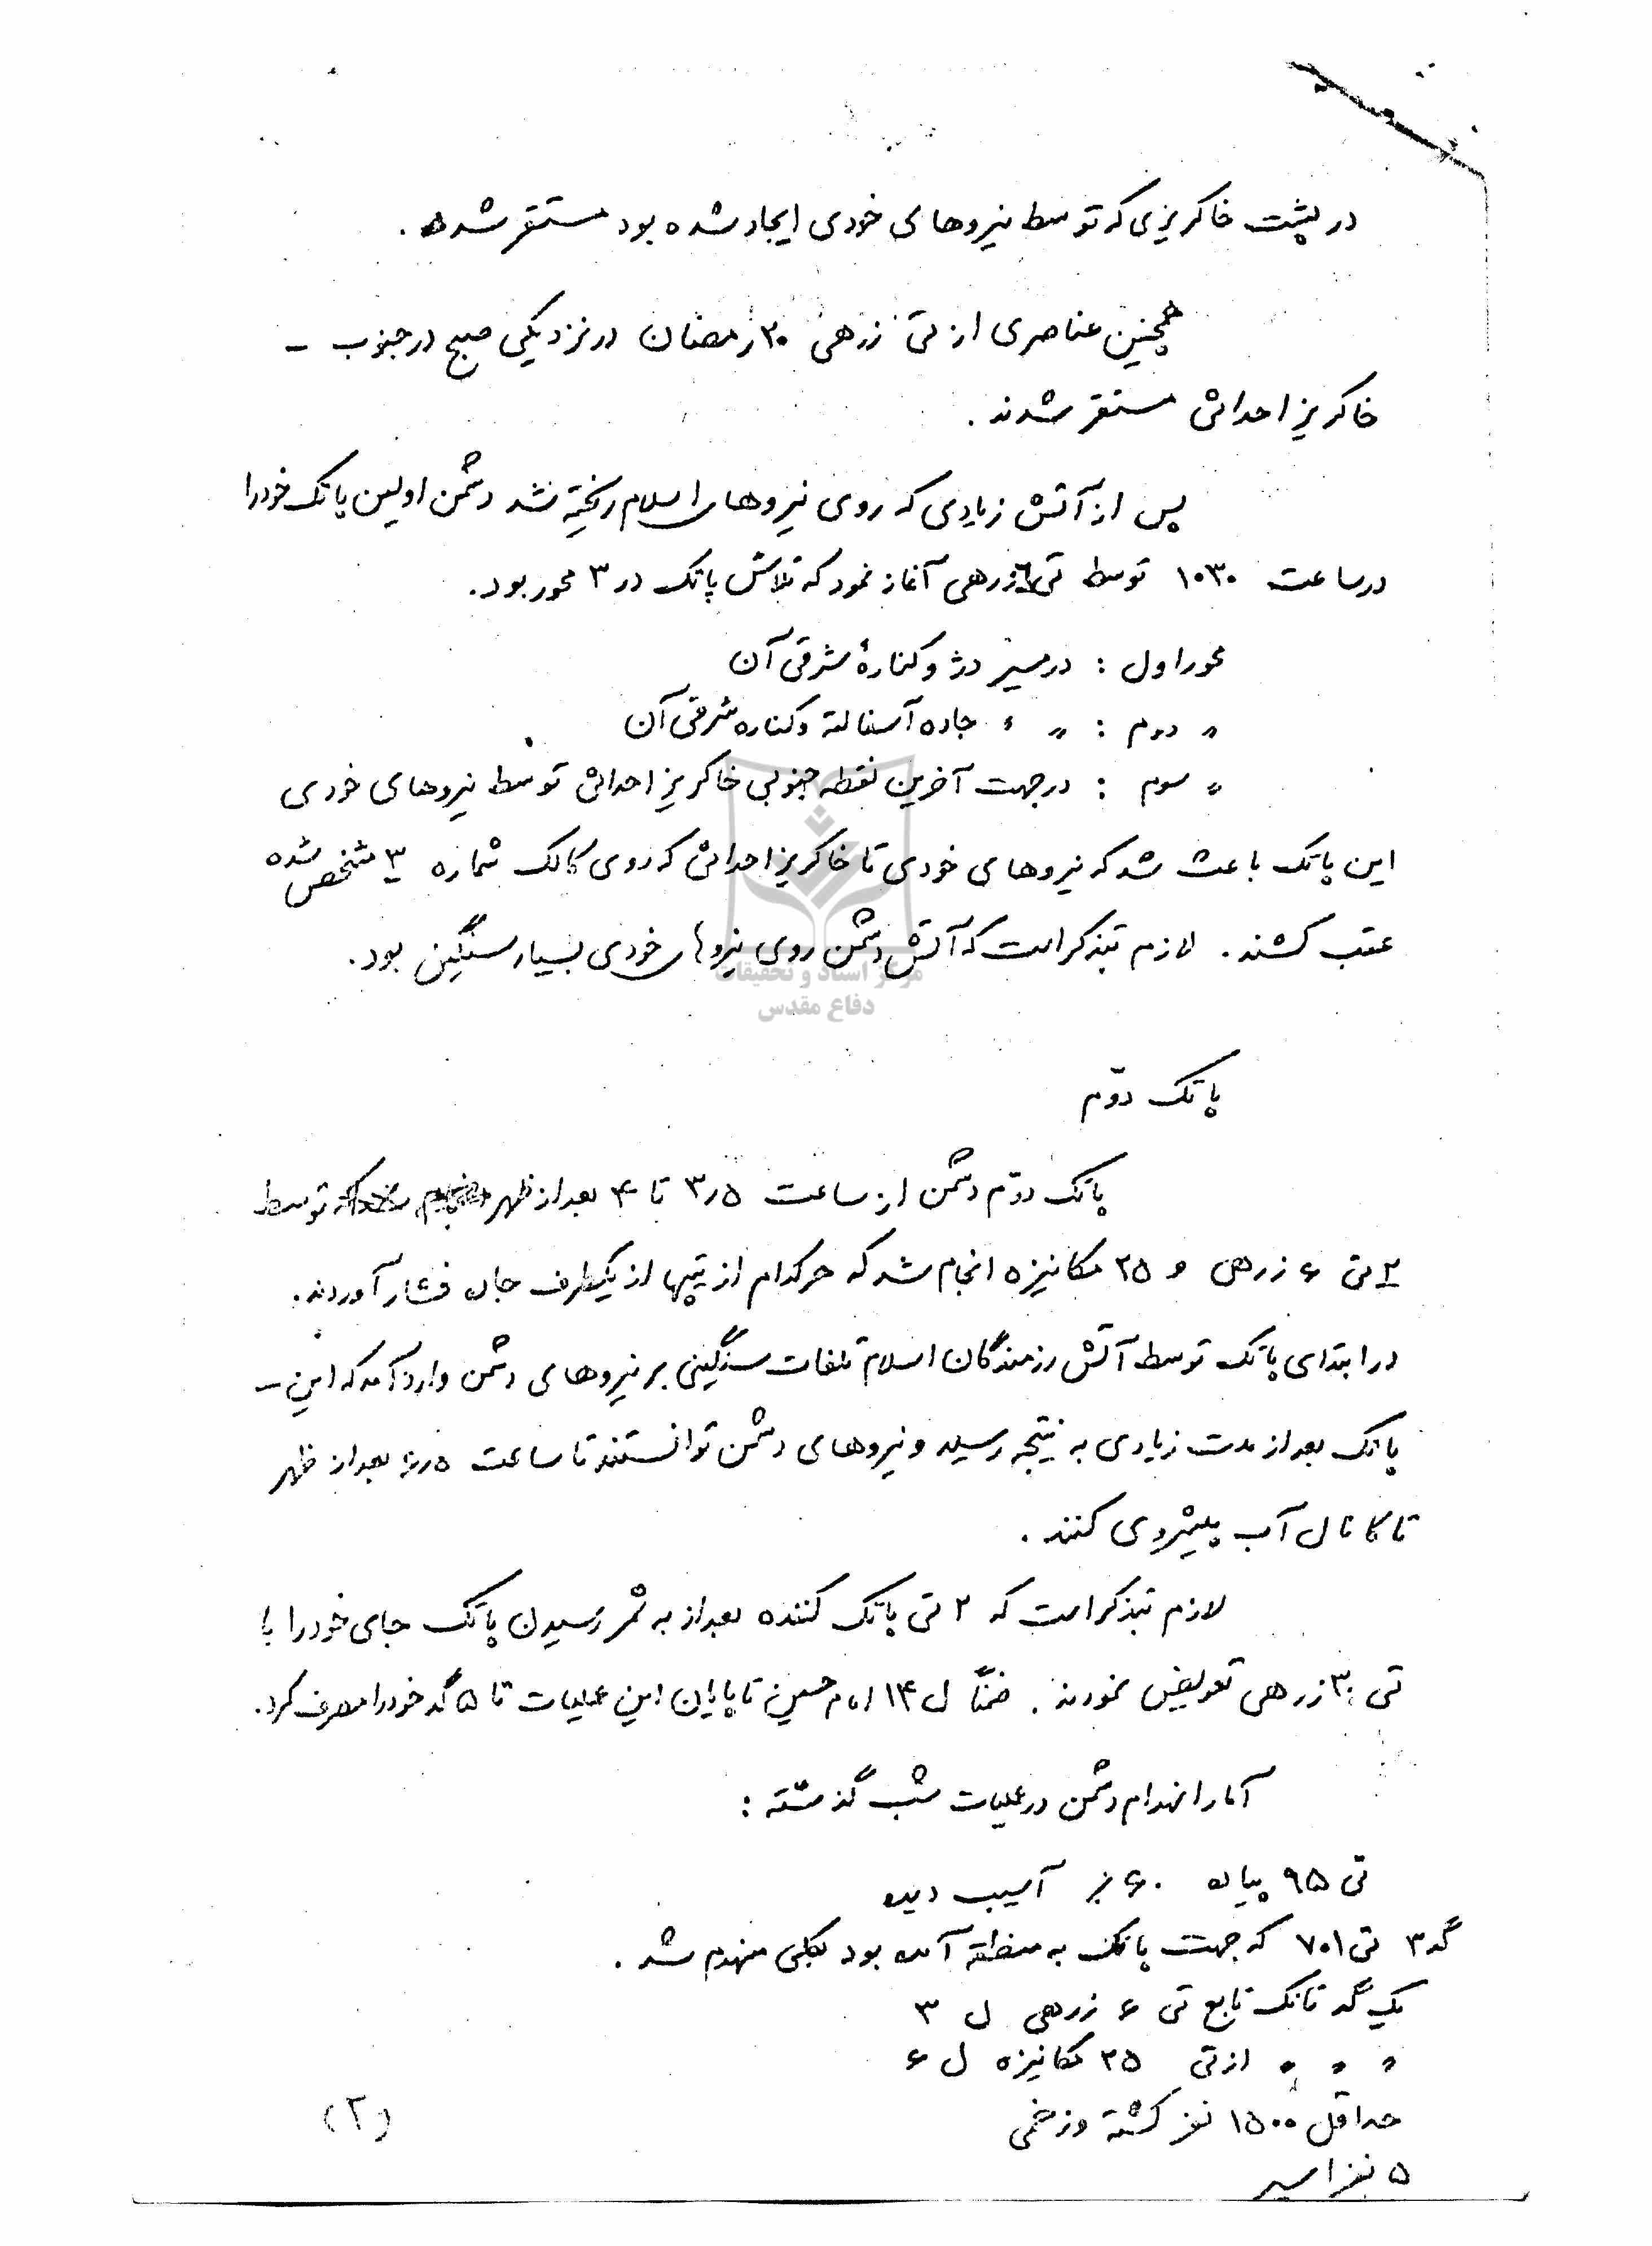 در پشت خاکریزی که توسط نیروهای خودی ایجاد شده بود مستقر شده .
همچنین عناصری از تی زرهی ۲۰ رمضان در نزدیکی صبح در جنوب –
خاکریز احداثی مستقر شدند .
پس از آتش زیادی که روی نیروهای اسلام ریخته شد دشمن اولین پاتک خود را
در ساعت ۱۰۳۰ توسط تی ۶ زرهی آغاز نمود که تلاش پاتک در ۳ محور بود.
محور اول : در مسیر دژ و کنارهٔ شرقی آن
〃 دوم : 〃 〃 جاده آسفالته و کناره شرقی آن
〃 سوم : در جهت آخرین نقطه جنوبی خاکریز احداثی توسط نیروهای خودی
این پاتک باعث شد که نیروهای خودی تا خاکریز احداثی که روی کالک شماره ۳ مشخص شده
عقب کشند . لازم بتذکر است که آتش دشمن روی نیروهای خودی بسیار سنگین بود.
مرکز اسناد و تحقیقات
دفاع مقدس
پاتک دوّم
پاتک دوّم دشمن از ساعت ۳٫۵ تا ۴ بعد از ظهر توسط
۲ تی ۶ زرهی و ۲۵ مکانیزه انجام شد که هرکدام از تیپها از یکطرف جاده فشار آوردند.
در ابتدای پاتک توسط آتش رزمندگان اسلام تلفات سنگینی بر نیروهای دشمن وارد آمد که این –
پاتک بعد از مدت زیادی به نتیجه رسید و نیروهای دشمن توانستند تا ساعت ۶٫۵ بعد از ظهر
تا کانال آب پیشروی کنند .
لازم بتذکر است که ۲ تی پاتک کننده بعد از به ثمر رسیدن پاتک جای خود را با
تی ۳۰ زرهی تعویض نمودند . ضمناً ل ۱۴ امام حسین تا پایان این عملیات تا ۵ گد خود را مصرف کرد.
آمار انهدام دشمن در عملیات شب گذشته :
تی ۹۵ پیاده ۶۰ ٪ آسیب دیده
گد ۳ تی ۷۰۱ که جهت پاتک به منطقه آمده بود بکلی منهدم شد .
یک گد تانک تابع تی ۶ زرهی ل ۳
〃 〃 〃 از تی ۲۵ مکانیزه ل ۶
حداقل ۱۵۰۰ نفر کشته و زخمی
۵ نفر اسیر
(۲)